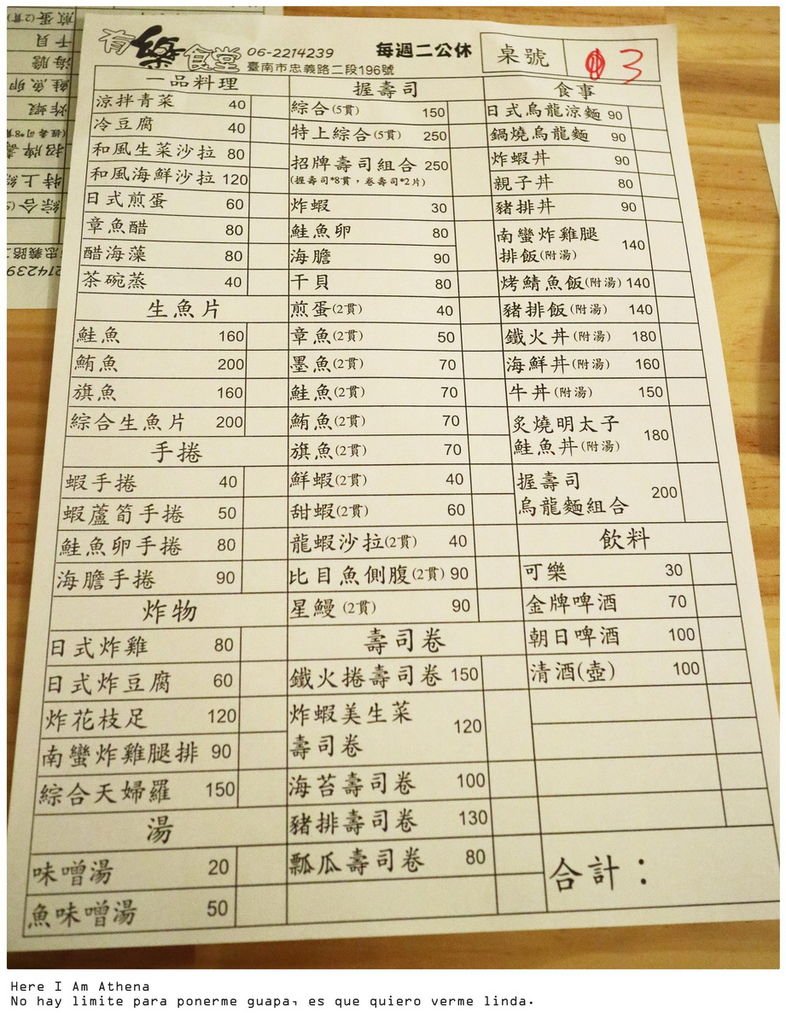 有樂食堂 06-2214239 每週二公休 桌號 3
臺南市忠義路二段196號
一品料理
涼拌青菜 40
冷豆腐 40
和風生菜沙拉 80
和風海鮮沙拉 120
日式煎蛋 60
章魚醋 80
醋海藻 80
茶碗蒸 40
生魚片
鮭魚 160
鮪魚 200
旗魚 160
綜合生魚片 200
手捲
蝦手捲 40
蝦蘆筍手捲 50
鮭魚卵手捲 80
海膽手捲 90
炸物
日式炸雞 80
日式炸豆腐 60
炸花枝足 120
南蠻炸雞腿排 90
綜合天婦羅 150
湯
味噌湯 20
魚味噌湯 50
握壽司
綜合(5貫) 150
特上綜合(5貫) 250
招牌壽司組合 250
(握壽司*8貫，卷壽司*2片)
炸蝦 30
鮭魚卵 80
海膽 90
干貝 80
煎蛋(2貫) 40
章魚(2貫) 50
墨魚(2貫) 70
鮭魚(2貫) 70
鮪魚(2貫) 70
旗魚(2貫) 70
鮮蝦(2貫) 40
甜蝦(2貫) 60
龍蝦沙拉(2貫) 40
比目魚側腹(2貫) 90
星鰻(2貫) 90
壽司卷
鐵火捲壽司卷 150
炸蝦美生菜
壽司卷 120
海苔壽司卷 100
豬排壽司卷 130
瓢瓜壽司卷 80
食事
日式烏龍涼麵 90
鍋燒烏龍麵 90
炸蝦丼 90
親子丼 80
豬排丼 90
南蠻炸雞腿
排飯(附湯) 140
烤鯖魚飯(附湯) 140
豬排飯(附湯) 140
鐵火丼(附湯) 180
海鮮丼(附湯) 160
牛丼(附湯) 150
炙燒明太子
鮭魚丼(附湯) 180
握壽司
烏龍麵組合 200
飲料
可樂 30
金牌啤酒 70
朝日啤酒 100
清酒(壺) 100
合計：
Here I Am Athena
No hay limite para ponerme guapa, es que quiero verme linda.